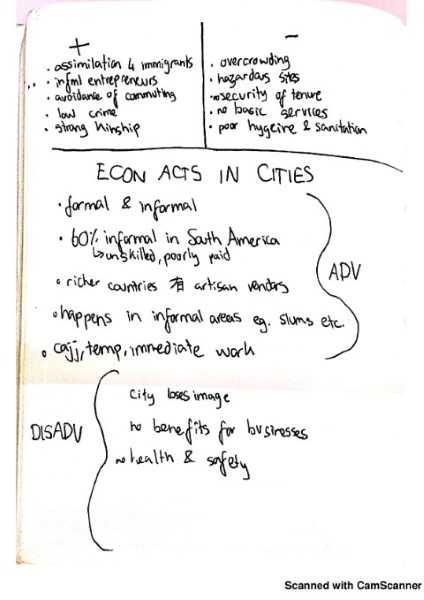 +
• assimilation 4 immigrants
• infml entrepreneurs
• avoidance of commuting
• low crime
• strong kinship
-
• overcrowding
• hazardous sites
• no security of tenure
• no basic services
• poor hygeine & sanitation
ECON ACTS IN CITIES
• formal & informal
• 60% informal in South America
↳ unskilled, poorly paid
• richer countries 有 artisan vendors
• happens in informal areas eg. slums etc.
• temp, immediate work
ADV
DISADV
city loses image
no benefits for businesses
no health & safety
Scanned with CamScanner